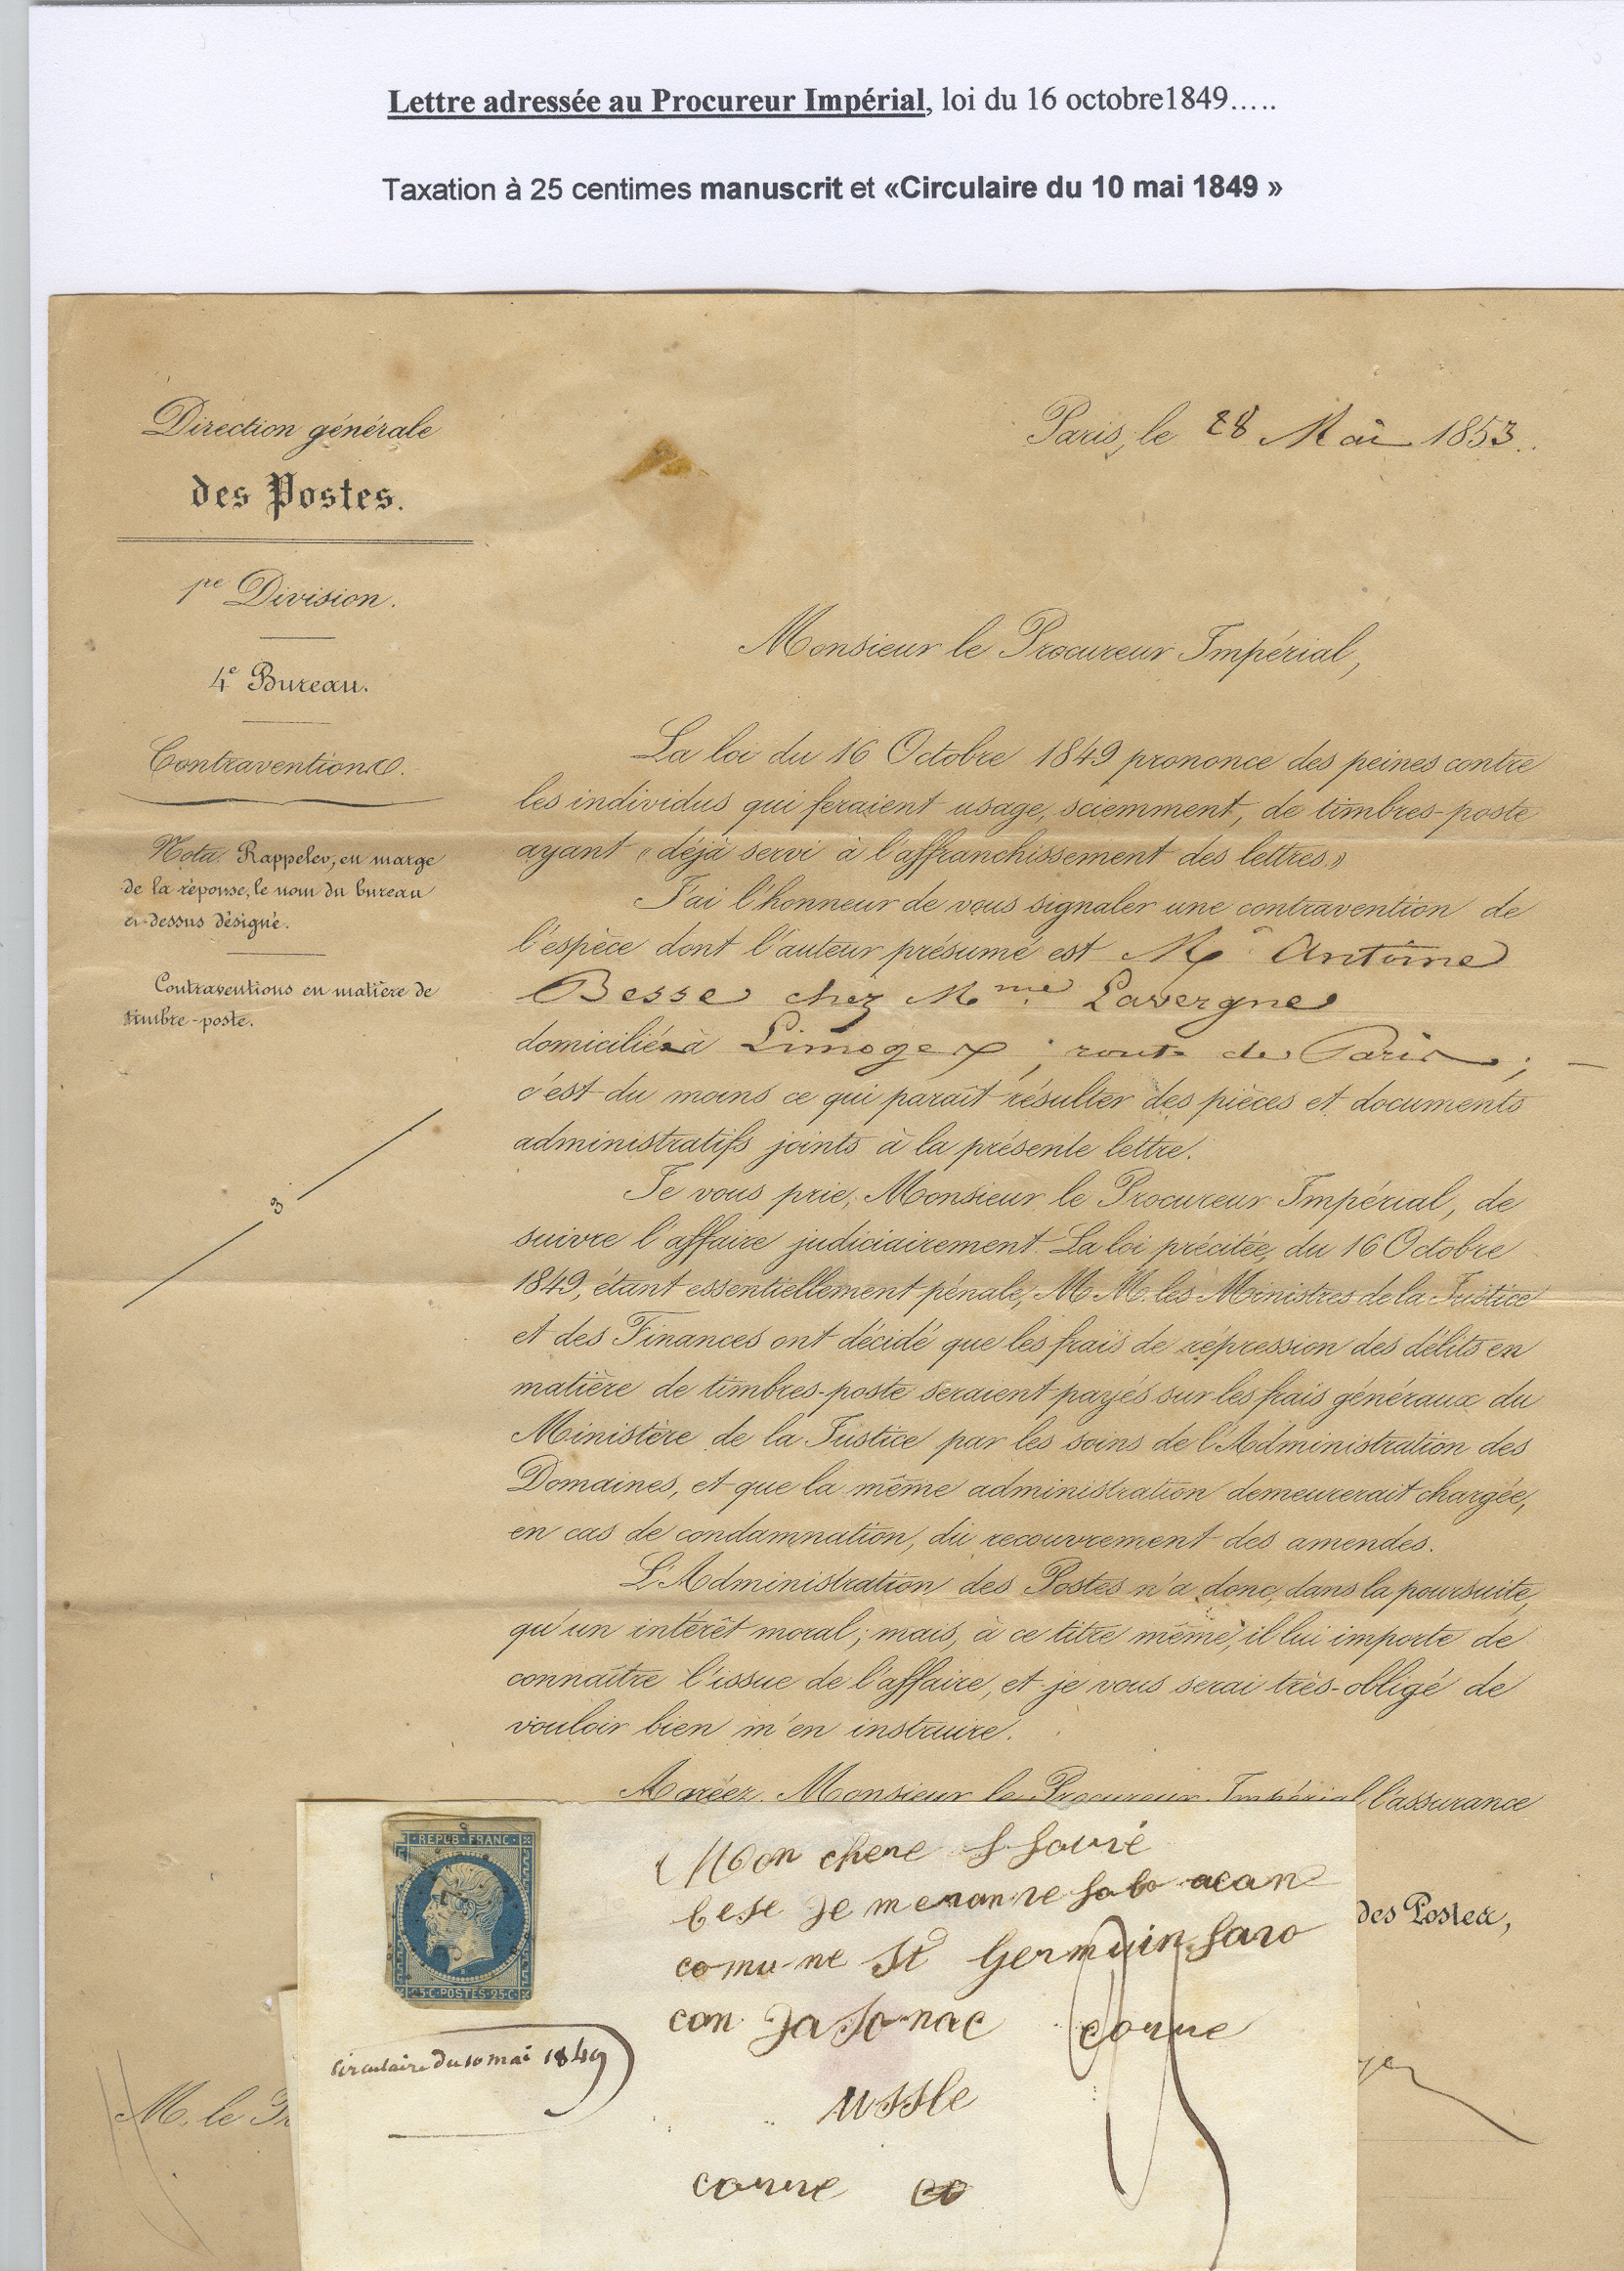 Lettre adressée au Procureur Impérial, loi du 16 octobre1849.....
Taxation à 25 centimes manuscrit et «Circulaire du 10 mai 1849 »
Direction générale
des Postes.
1re Division.
4e Bureau.
Contraventions.
Nota. Rappeler, en marge
de la réponse, le nom du bureau
ci-dessus désigné.
Contraventions en matière de
timbre-poste.
3
Paris, le 28 Mai 1853.
Monsieur le Procureur Impérial,
La loi du 16 Octobre 1849 prononce des peines contre
les individus qui feraient usage, sciemment, de timbres-poste
ayant « déjà servi à l'affranchissement des lettres.»
J'ai l'honneur de vous signaler une contravention de
l'espèce dont l'auteur présumé est Mr Antoine
Besse chez Mme Lavergne
domicilié à Limoges, route de Paris;
c'est du moins ce qui paraît résulter des pièces et documents
administratifs joints à la présente lettre.
Je vous prie, Monsieur le Procureur Impérial, de
suivre l'affaire judiciairement. La loi précitée, du 16 Octobre
1849, étant essentiellement pénale, M.M. les Ministres de la Justice
et des Finances ont décidé que les frais de répression des délits en
matière de timbres-poste seraient payés sur les frais généraux du
Ministère de la Justice par les soins de l'Administration des
Domaines, et que la même administration demeurerait chargée,
en cas de condamnation, du recouvrement des amendes.
L'Administration des Postes n'a donc, dans la poursuite,
qu'un intérêt moral; mais, à ce titre même, il lui importe de
connaître l'issue de l'affaire, et je vous serai très-obligé de
vouloir bien m'en instruire.
Agréez, Monsieur le Procureur Impérial, l'assurance
des Postes,
M. le Pr
REPUB FRANC
25 C POSTES 25 C
Circulaire du 10 mai 1849
Mon chere
bese je
comune St Germain
can Jasonac corre
ussle
corre co